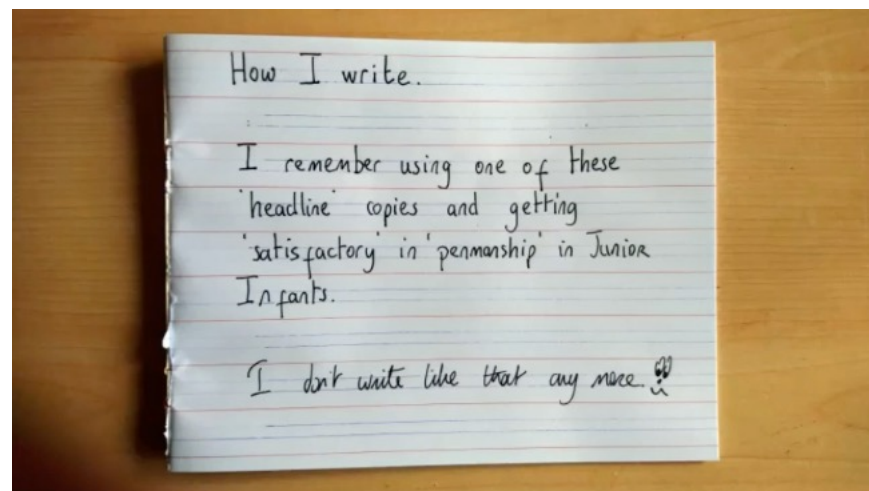 How I write.
I remember using one of these
'headline' copies and getting
'satisfactory' in 'penmanship' in Junior
Infants.
I don't write like that any more